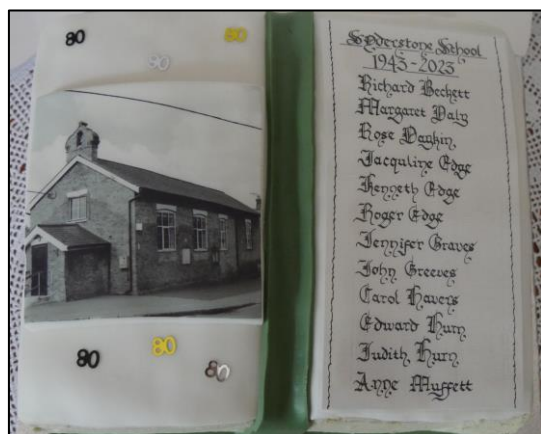 80 80
80
80 80 80
Syderstone School
1943-2023
Richard Beckett
Margaret Daly
Rose Daykin
Jacquline Edge
Kenneth Edge
Roger Edge
Jennifer Graves
John Greeves
Carol Havers
Edward Hurn
Judith Hurn
Anne Muffett